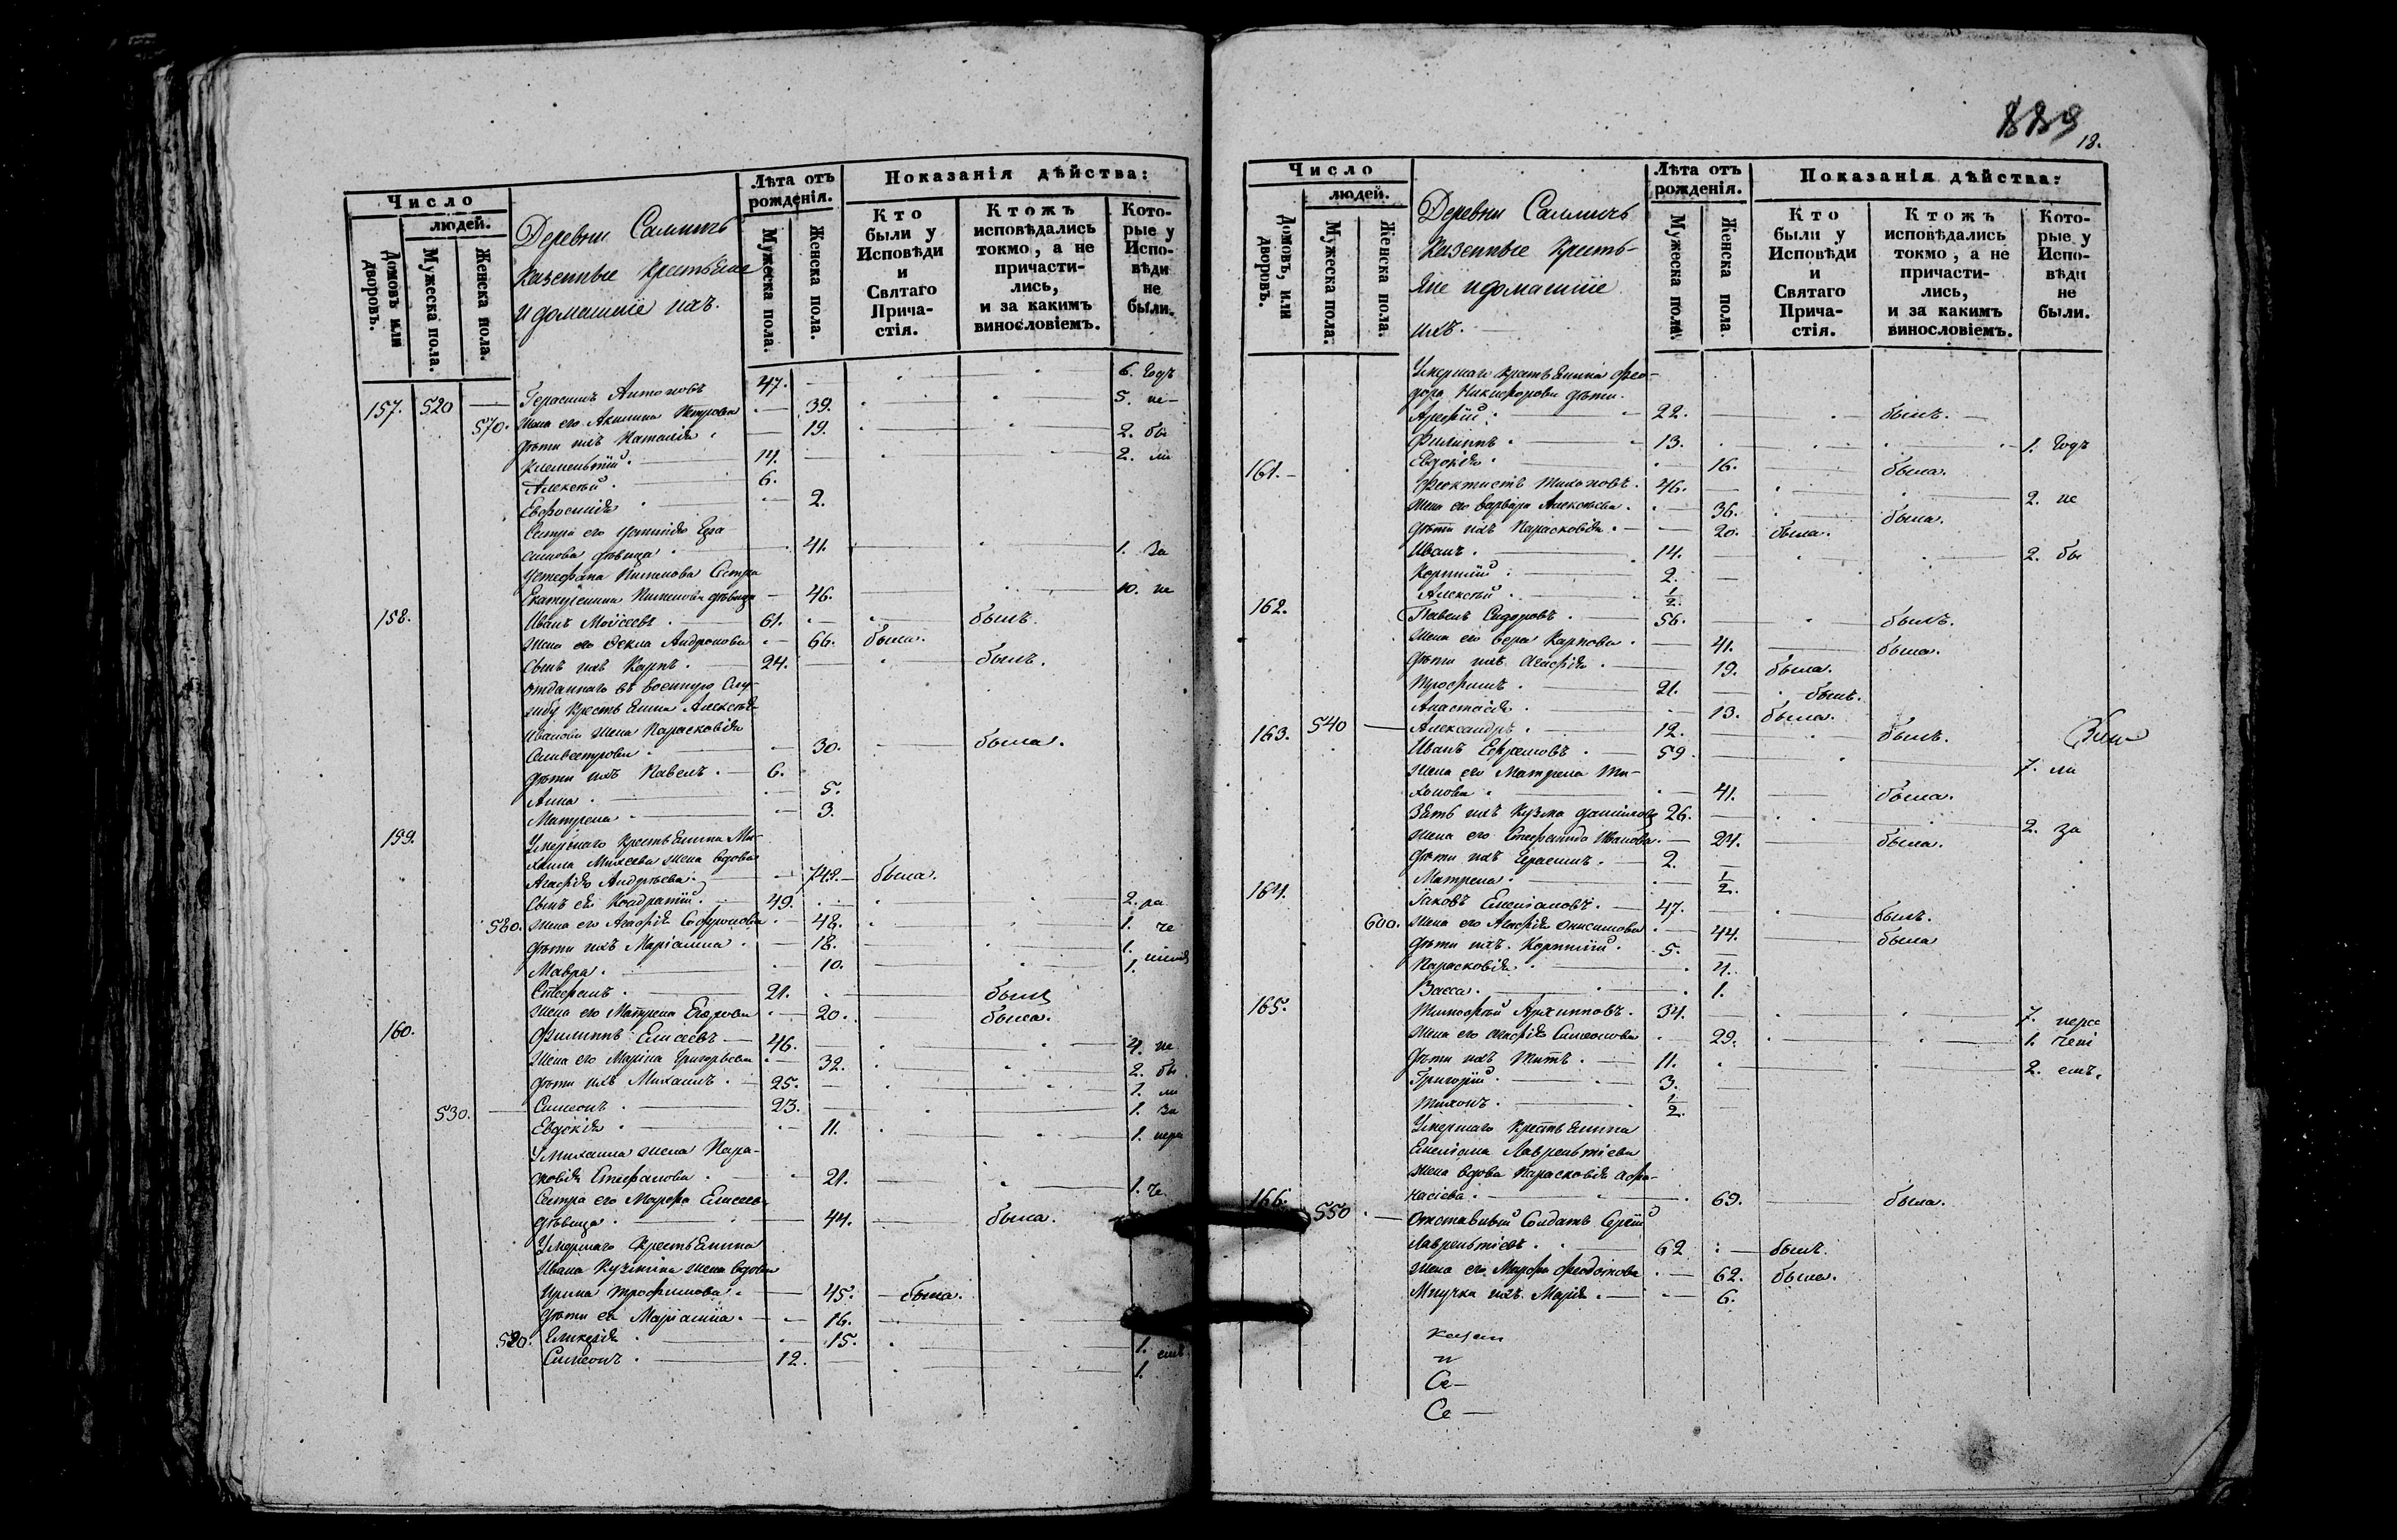 Число
людей.
Домовъ или дворовъ.
Мужеска пола.
Женска пола.
Деревни
казенные крестьяне
и домашніе ихъ.
Лѣта отъ рожденія.
Мужеска пола.
Женска пола.
Показанія дѣйства:
Кто были у Исповѣди и Святаго Прича-стія.
Ктожъ исповѣдались токмо, а не причасти-лись, и за какимъ винословіемъ.
Кото-рые у Испо-вѣди не были.
157. 520 — Герасимъ Антоновъ 47. 6. годъ
570. жена его Акилина Петрова 39. 5. не-
дѣти ихъ Наталія 19. 2. бы
Клементій 14. 2. ли
Алексѣй 6.
Евфросинія 2.
Сестра его Гера
симова дѣвица 41. 1. За
Сестра
Екатерина дѣвица 46. 10. не
158. Иванъ Моѵсеевъ 61. былъ.
жена его Ѳекла Андронова 66. была.
сынъ ихъ Карпъ. 24. былъ.
отданнаго въ военную слу-
жбу крестьянина Алексѣя
Иванова жена Парасковія
Силвестрова 30. была.
дѣти ихъ Павелъ. 6.
Анна. 5.
Матрена 3.
159. Умершаго крестьянина Ми-
хаила Михеева жена вдова
Агафія Андреева. 748. была.
сынъ ея Кондратій. 49. 2. ра
580. жена его Агафія Софронова 48. 1. че
дѣти ихъ Маріамна. 18. 1.
Мавра. 10. 1.
Стефанъ. 21. былъ
жена его Матрена Егорова 20. была.
160. Филиппъ Елисеевъ 46. 4. не
жена его Марина Григорьева 32. 2. бы
дѣти ихъ Михаилъ. 25. 1. ли
530. Симеонъ. 23. 1. За
Евдокія 11. 1. нера
У Михаила жена Пара-
сковія Стефанова 21. 1. че
Сестра его Марфа Елисеева
дѣвица 44. была.
Умершаго крестьянина
Ивана Кузмина жена вдова
Ирина Трофимова. 45. была.
дѣти ея Маріамна. 16.
590. Гликерія 15. 1. емъ
Симеонъ. 12. 1.
889
18.
Число
людей.
Домовъ, или дворовъ.
Мужеска пола.
Женска пола.
Деревни
казенные кресть-
яне и домашніе
ихъ.
Лѣта отъ рожденія.
Мужеска пола.
Женска пола.
Показанія дѣйства:
Кто были у Исповѣди и Святаго Прича-стія.
Ктожъ исповѣдались токмо, а не причасти-лись, и за какимъ винословіемъ.
Кото-рые у Испо-вѣди не были.
Умершаго крестьянина Ѳео-
дора Никифорова дѣти.
Арефій. 22. былъ.
Филиппъ. 13. 1. годъ
Евдокія. 16. была.
161. Ѳеоктистъ Тихоновъ. 46. 2. не
жена его Варвара Алексѣева. 36. была.
дѣти ихъ Парасковія. 20. была.
Иванъ. 14. 2. бы
Корнилій. 2.
Алексѣй. 1/2.
162. Павелъ Сидоровъ. 56. былъ.
жена его Вера Карпова. 41. была.
дѣти ихъ Агафія. 19. была.
Трофимъ. 21. былъ.
Анастасія. 13. была.
540 — Александръ. 12. былъ.
163. Иванъ Ефремовъ. 59. 7. ли
жена его Матрена Ти-
хонова. 41. была.
Зять ихъ Кузма Даниловъ 26. 2. за
жена его Стефанида Иванова. 24. была.
дѣти ихъ Герасимъ. 2.
Матрена. 1/2.
164. Іаковъ Емеліановъ. 47. былъ.
600. жена его Агафія Онисимова 44. была
дѣти ихъ. Корнилій. 5.
Парасковія. 4.
Васса. 1.
165. Тимофей Архиповъ. 34. 7. нера
жена его Агафія Симеонова 29. 1. чені
дѣти ихъ Титъ. 11. 2. емъ.
Григорій. 3.
Тихонъ. 1/2.
Умершаго крестьянина
Емеліана Лаврентіева
жена вдова Парасковія Афа-
насіева. 69. была.
166. 550 — Отставный солдатъ Сергій
Лаврентіевъ. 62 былъ.
жена его Марфа Ѳеодотова 62. была.
Внучка ихъ Марія. 6.
и
Се—
Се—